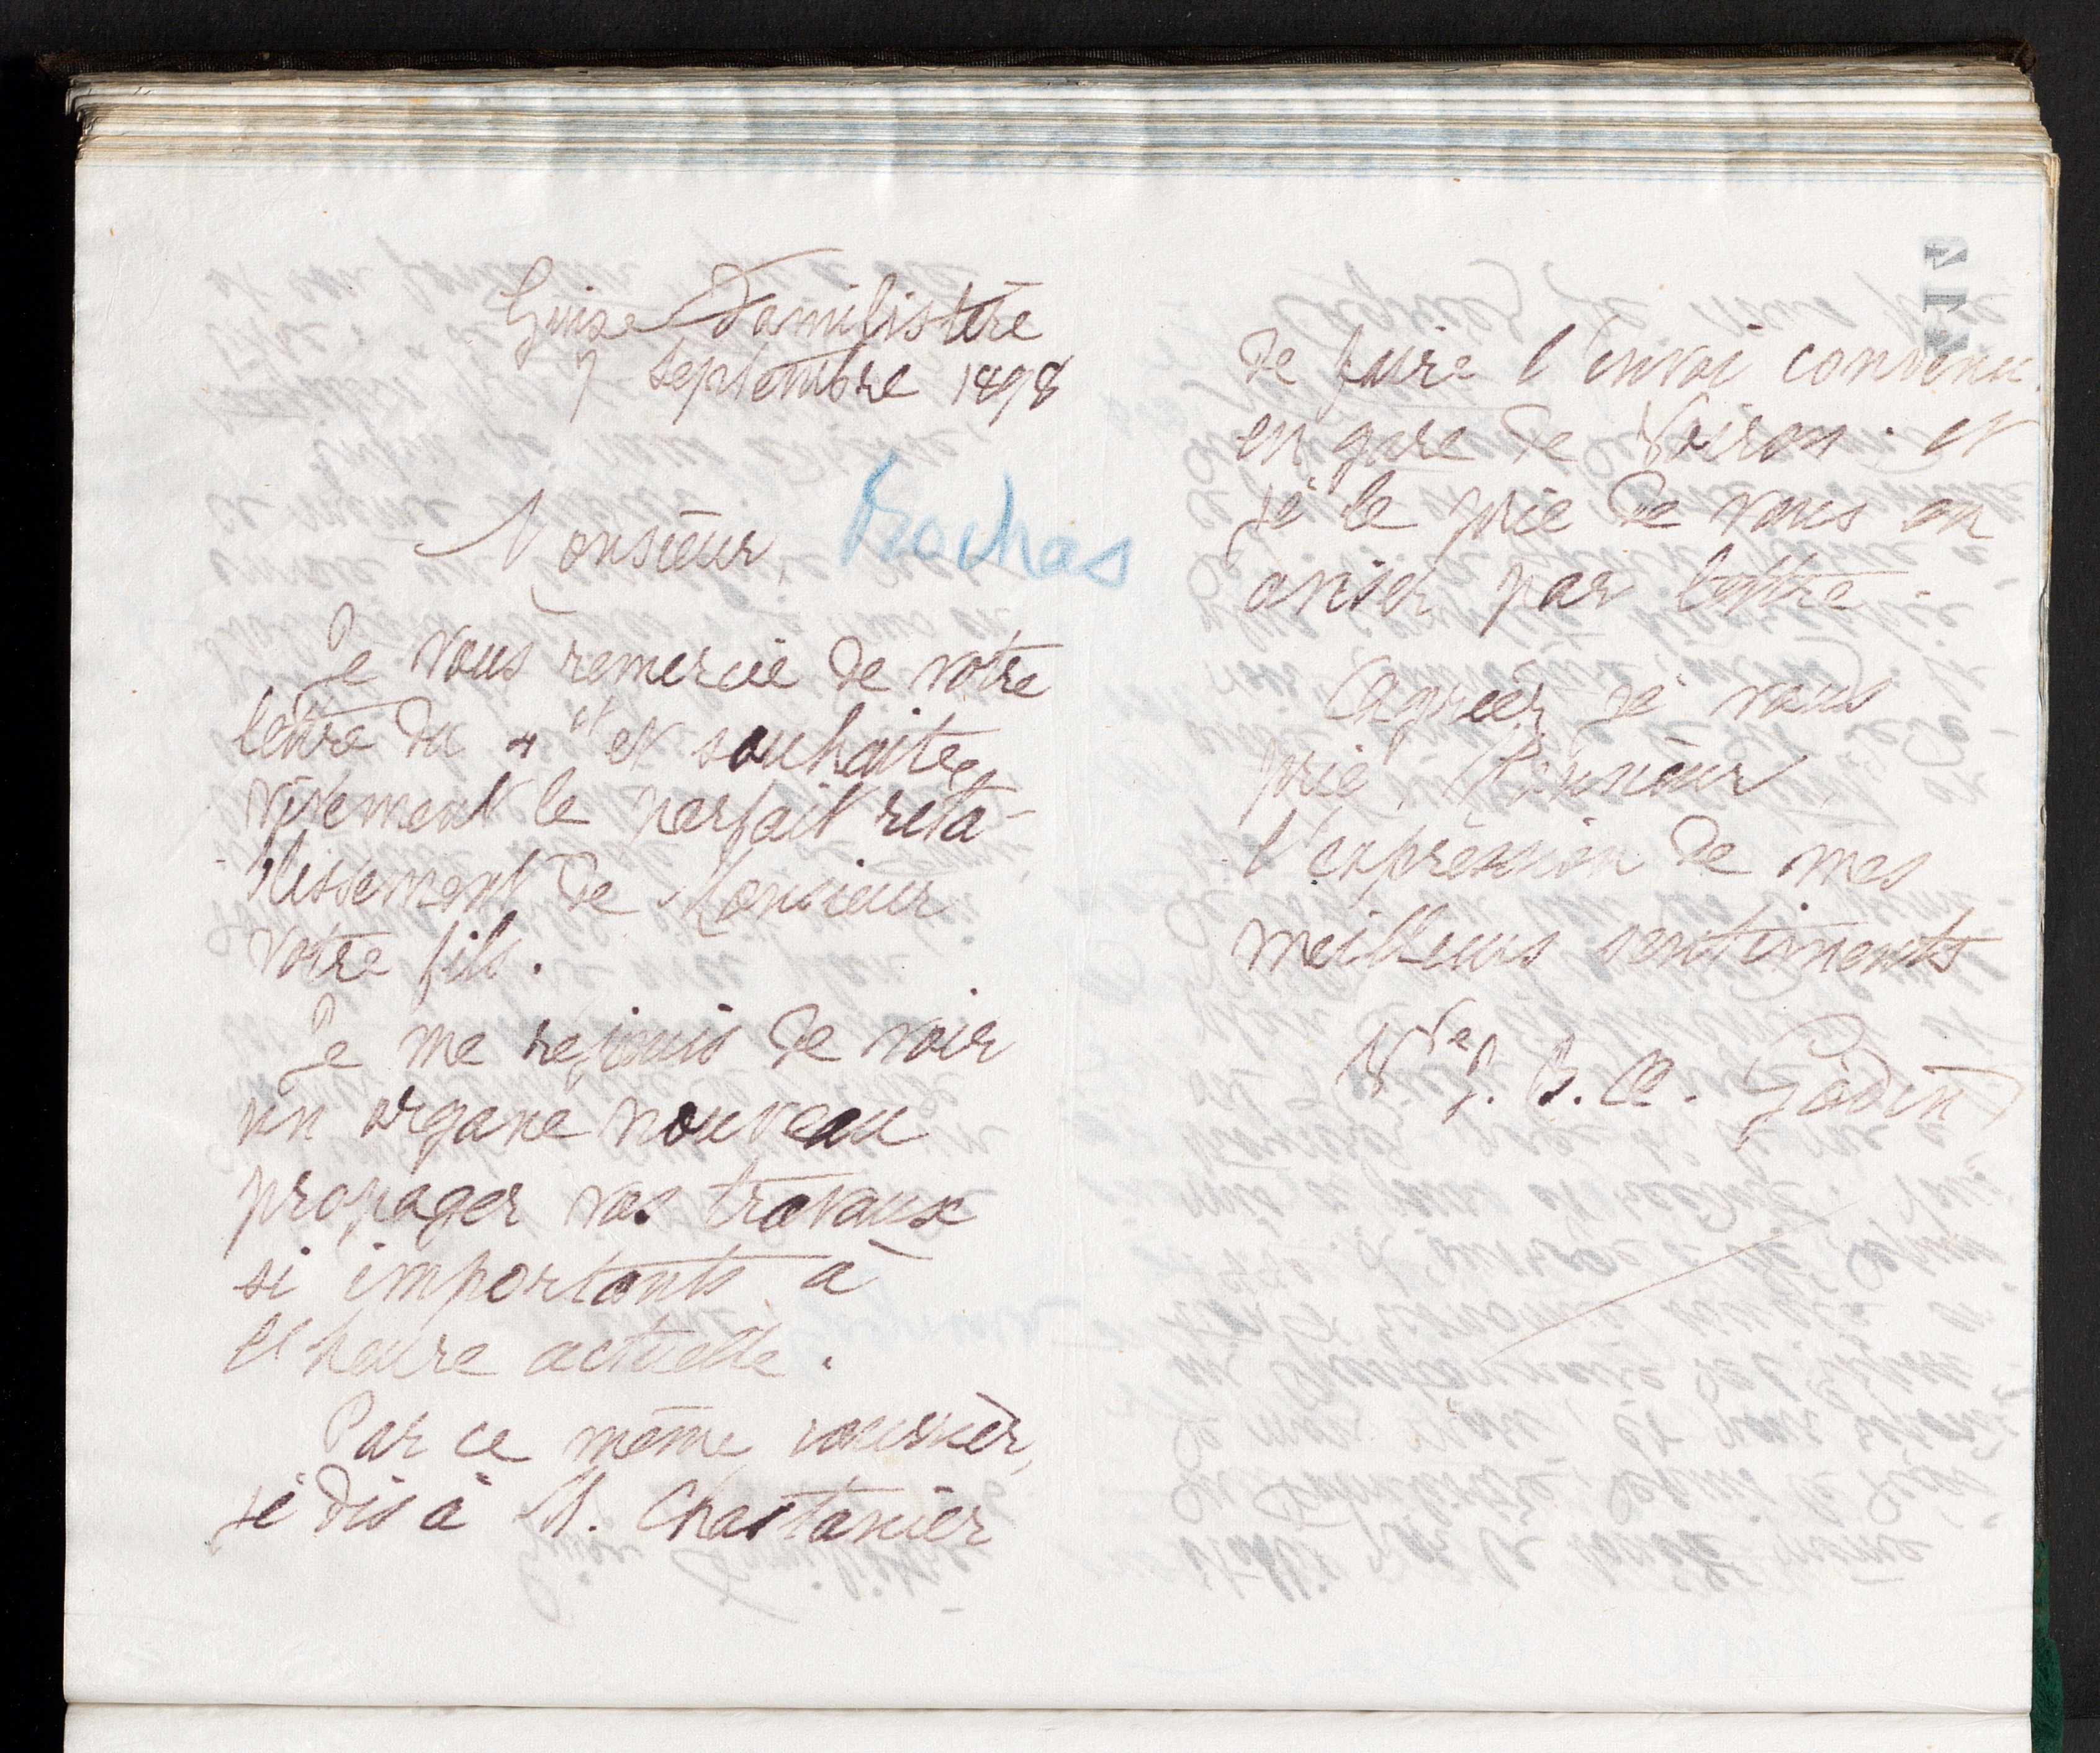 Guise Familistère
7 septembre 1898
Monsieur, Rochas
Je vous remercie de votre
lettre du 4 ct et souhaite
vivement le parfait réta-
blissement de Monsieur
votre fils.
Je me réjouis de voir
un organe nouveau
propager vos travaux
si importants à
l'heure actuelle.
Par ce même courrier,
je dis à M. Chastanier
417
de faire l'envoi convenu
en gare de Voiron; et
je le prie de vous en
aviser par lettre.
Agréez, je vous
prie, Monsieur,
l'expression de mes
meilleurs sentiments
Vve J. B. A. Godin